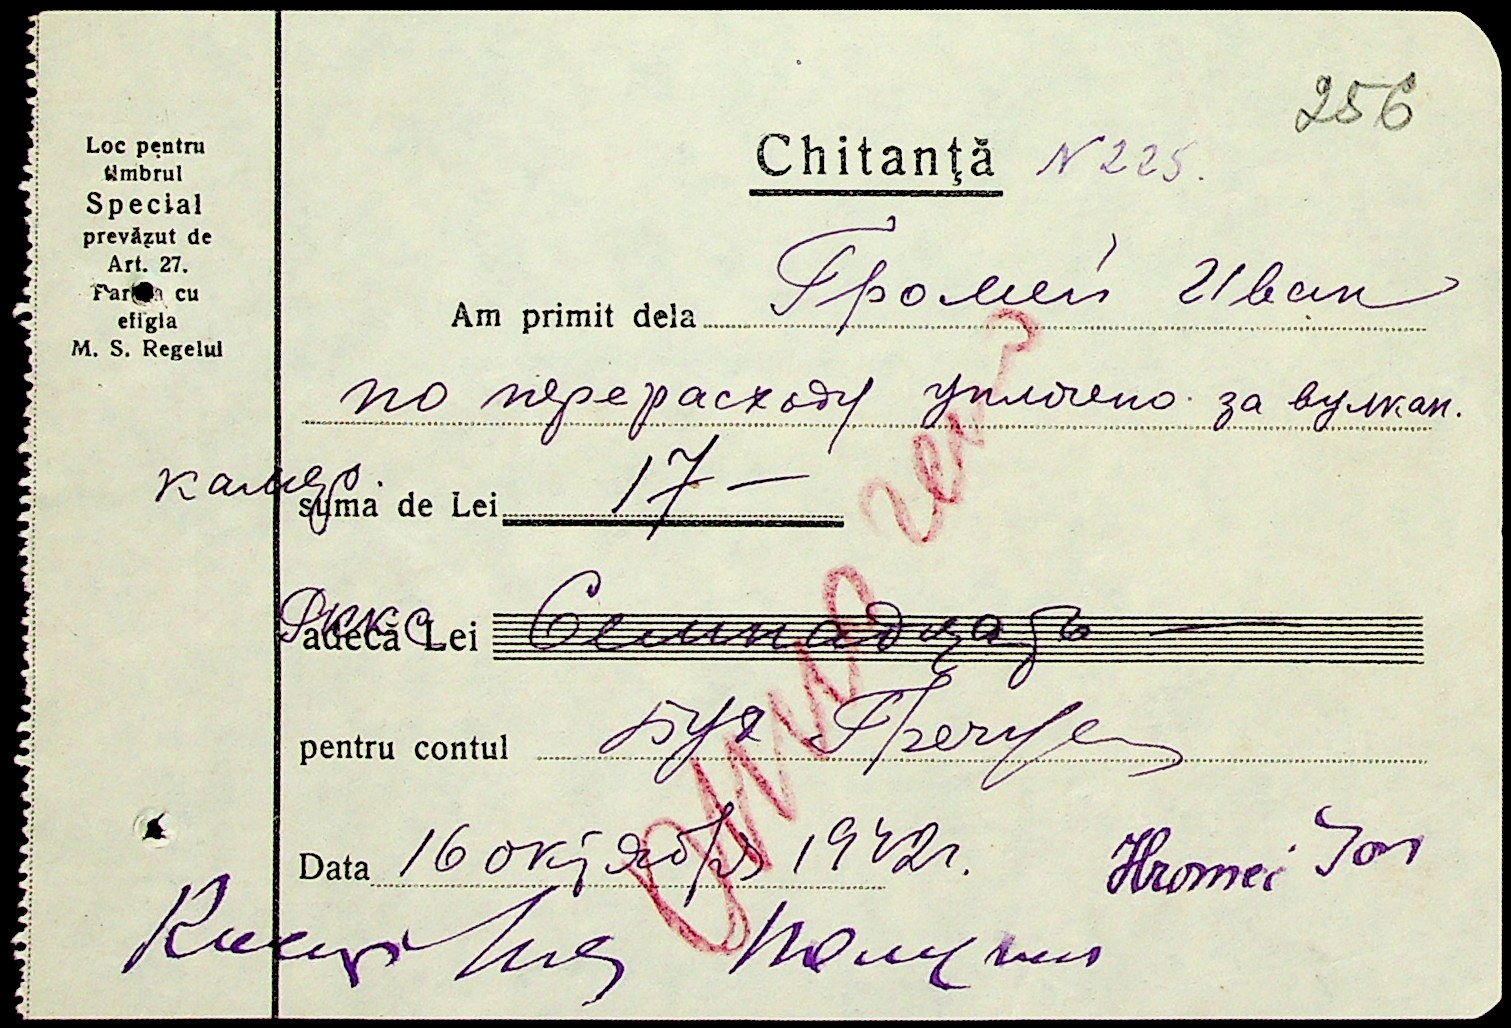 256
Loc pentru
timbrul
Special
prevăzut de
Art. 27.
Partea cu
efigia
M. S. Regelui
Chitanţă N 225.
Am primit dela Громей Иван
по перерасходу уплочено за вулкан.
камер.
suma de Lei 17 —
adecă Lei Семнадцать —
pentru contul Бух
Data 16 октября 1942 г.
Hromei Ion